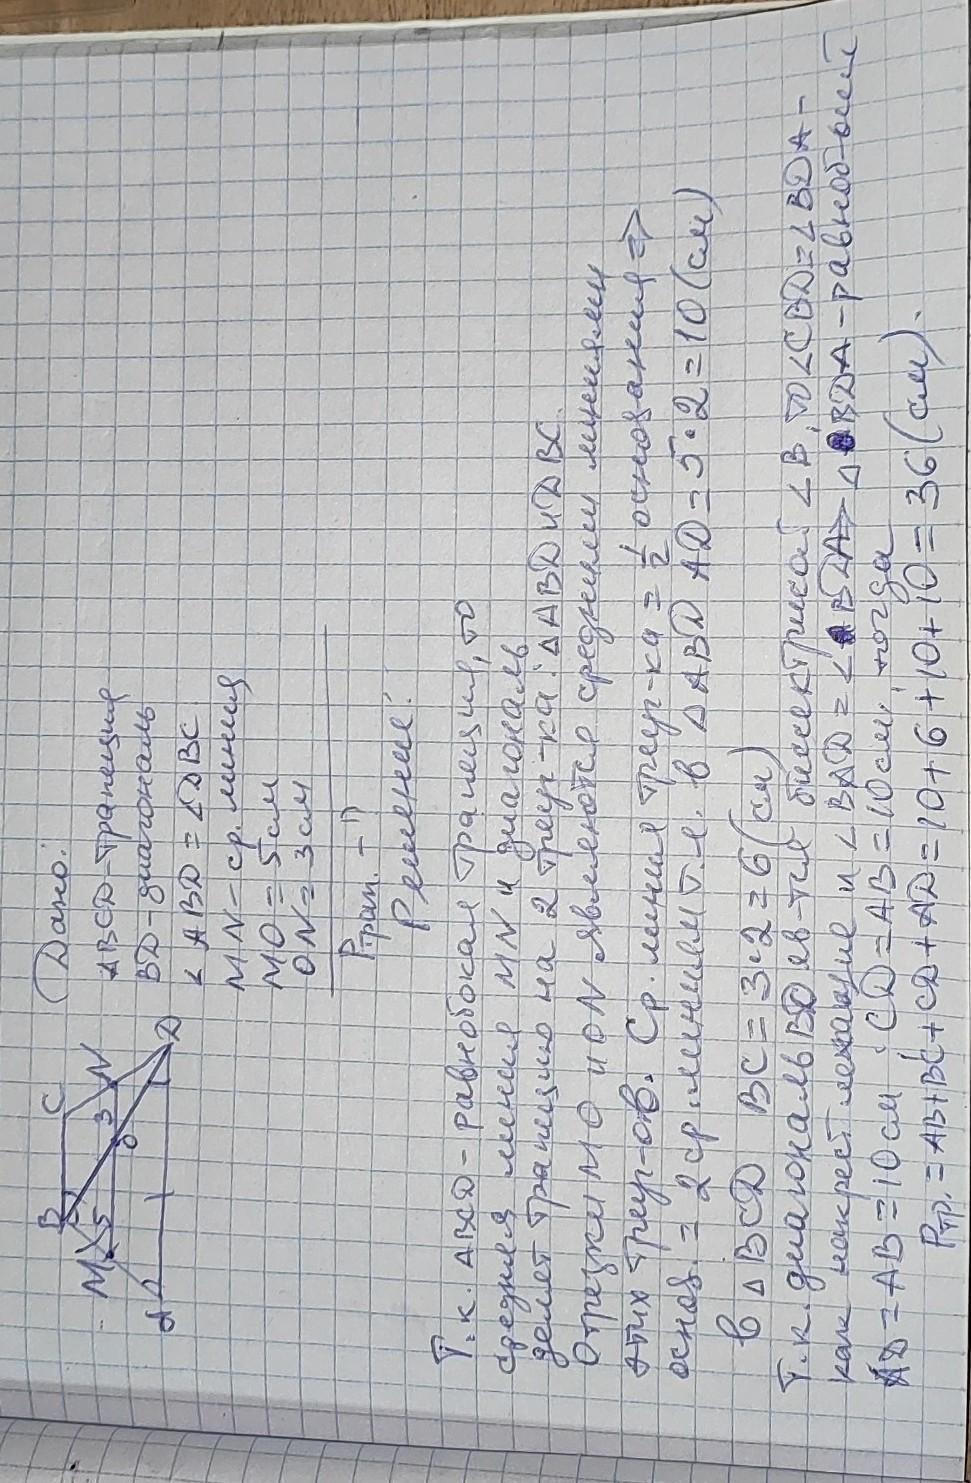 B C
M 5 3 N
O
A D
Дано:
ABCD-трапеция
BD-диагональ
∠ ABD = ∠DBC
MN-ср. линия
MO=5см
ON=3см
Pтрап. - ?
Решение:
Т.к. ABCD-равнобокая трапеция, то
средняя линия MN и диагональ
делят трапецию на 2 треуг-ка: △ABD и DBC.
Отрезки MO и ON являются средними линиями
этих треуг-ов. Ср. линия треуг-ка = 1/2 основания ⇒
основ. = 2 ср. линиям т.е. в △ABD AD=5·2=10(см)
в △BCD BC=3·2=6(см)
Т.к. диагональ BD яв-тся биссектрисой ∠B, то ∠CBD=∠BDA-
как накрест лежащие и ∠BAD=∠BDA⇒ △BDA-равноб-ый
AD=AB=10см, CD=AB=10см, тогда
Pтр.=AB+BC+CD+AD=10+6+10+10=36(см).